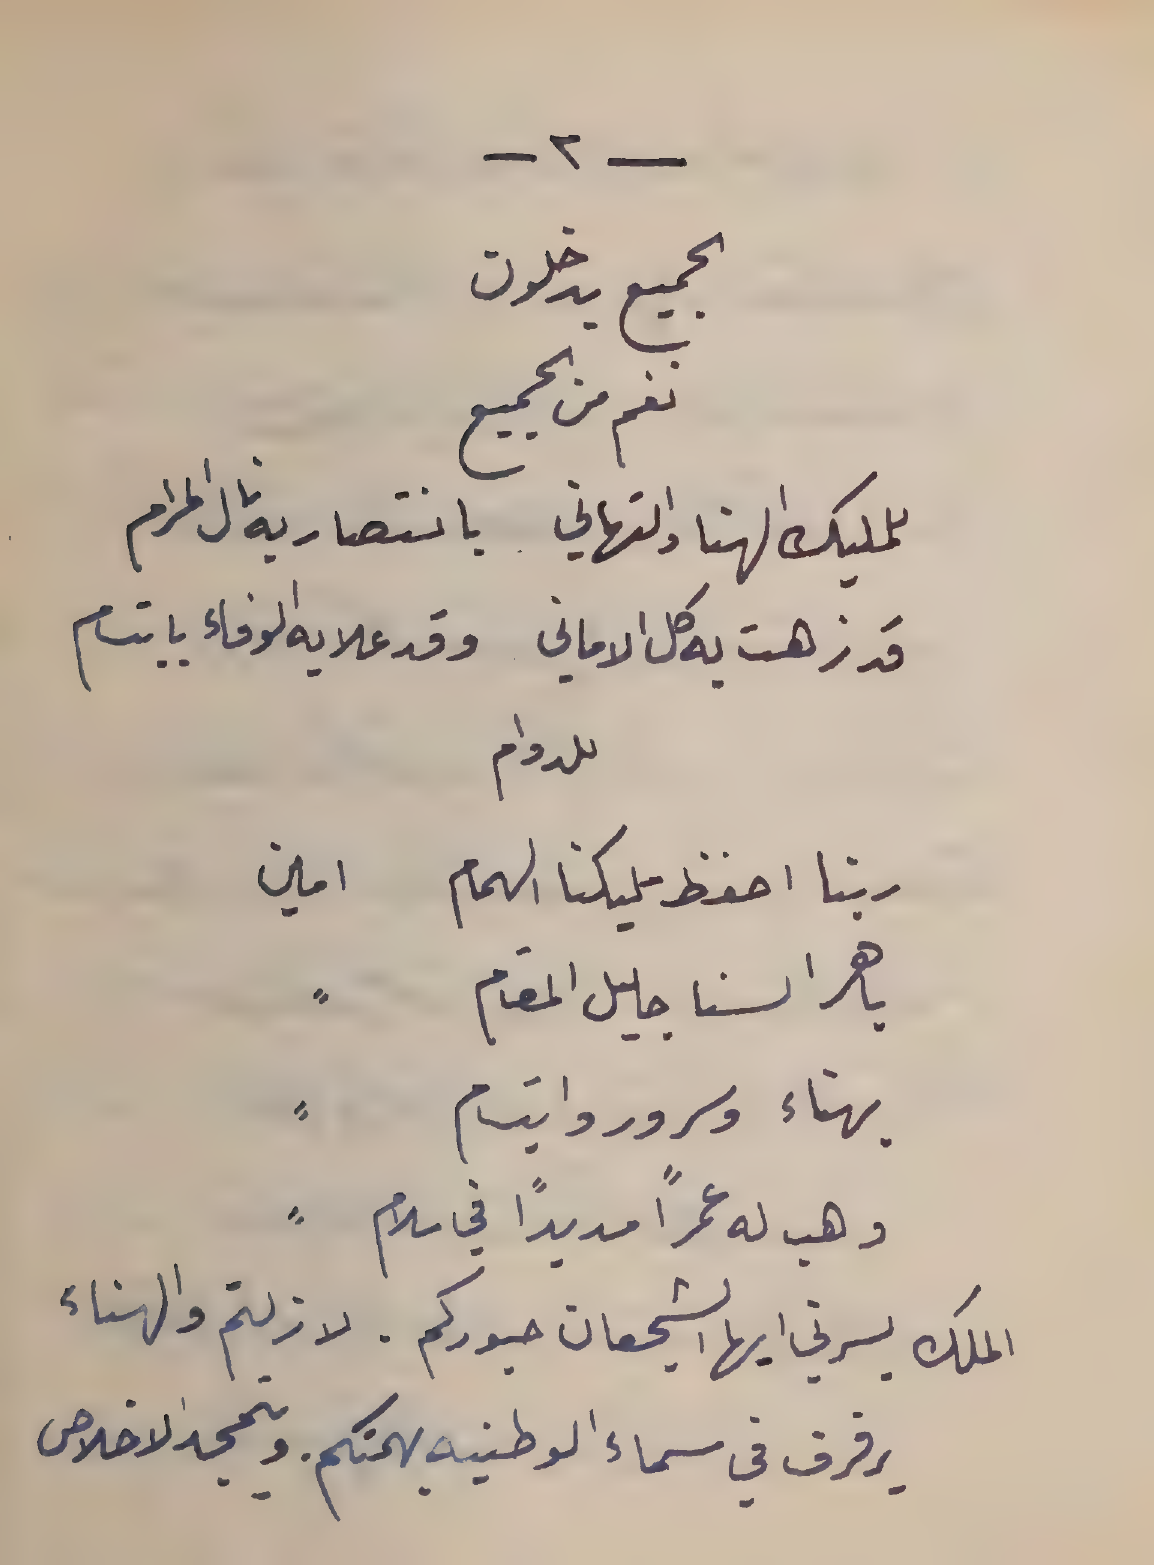 — ٢ —
الجميع يدخلون
نغم من الجميع
للمليك الهنا والتهاني بانتصار به نال المرام
قد زهت به كل الاماني وقد علا به الوفاء بابتسام
للدوام
ربنا احفظ مليكنا الهمام امين
باهر السنا جليل المقام "
بهناء وسرور وابتسام "
وهب له عمراً مديداً في سلام "
الملك يسرني ايها الشجعان حبوركم . لا زلتم والهناء
يرفرف في سماء الوطنيه بهمتكم . والاخلاص